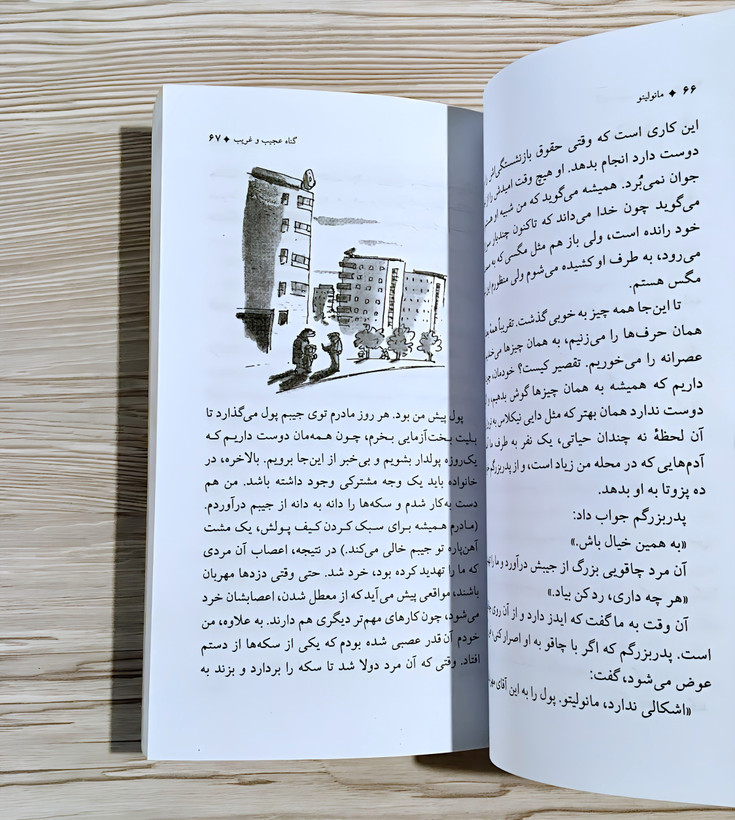 ۶۶ ♦ مانولیتو
این کاری است که وقتی حقوق بازنشستگی‌اش را
دوست دارد انجام بدهد. او هیچ وقت امیدش را از
جوان نمی‌بُرد. همیشه می‌گوید که من شبیه او
می‌گوید چون خدا می‌داند که تاکنون چندبار
خود رانده است، ولی باز هم مثل مگسی که به
می‌رود، به طرف او کشیده می‌شوم ولی منظورم این
مگس هستم.
تا این‌جا همه چیز به خوبی گذشت. تقریباً
همان حرف‌ها را می‌زنیم، به همان چیزها
عصرانه را می‌خوریم. تقصیر کیست؟ خودمان،
داریم که همیشه به همان چیزها گوش بدهیم،
دوست ندارد همان بهتر که مثل دایی نیکلاس به
آن لحظهٔ نه چندان حیاتی، یک نفر به طرف ما
آدم‌هایی که در محله من زیاد است، و از پدربزرگم
ده پزوتا به او بدهد.
پدربزرگم جواب داد:
«به همین خیال باش.»
آن مرد چاقویی بزرگ از جیبش درآورد و ما را
«هر چه داری، رد کن بیاد.»
آن وقت به ما گفت که ایدز دارد و از آن روی
است. پدربزرگم که اگر با چاقو به او اصرار کنی
عوض می‌شود، گفت:
«اشکالی ندارد، مانولیتو. پول را به این آقای
گناه عجیب و غریب ♦ ۶۷
پول پیش من بود. هر روز مادرم توی جیبم پول می‌گذارد تا
بلیت بخت‌آزمایی بخرم، چون همه‌مان دوست داریم که
یک‌روزه پولدار بشویم و بی‌خبر از این‌جا برویم. بالاخره، در
خانواده باید یک وجه مشترکی وجود داشته باشد. من هم
دست به‌کار شدم و سکه‌ها را دانه به دانه از جیبم درآوردم.
(مادرم همیشه برای سبک کردن کیف پولش، یک مشت
آهن‌پاره تو جیبم خالی می‌کند.) در نتیجه، اعصاب آن مردی
که ما را تهدید کرده بود، خرد شد. حتی وقتی دزدها مهربان
باشند، مواقعی پیش می‌آید که از معطل شدن، اعصابشان خرد
می‌شود، چون کارهای مهم‌تر دیگری هم دارند. به علاوه، من
خودم آن‌قدر عصبی شده بودم که یکی از سکه‌ها از دستم
افتاد. وقتی که آن مرد دولا شد تا سکه را بردارد و بزند به